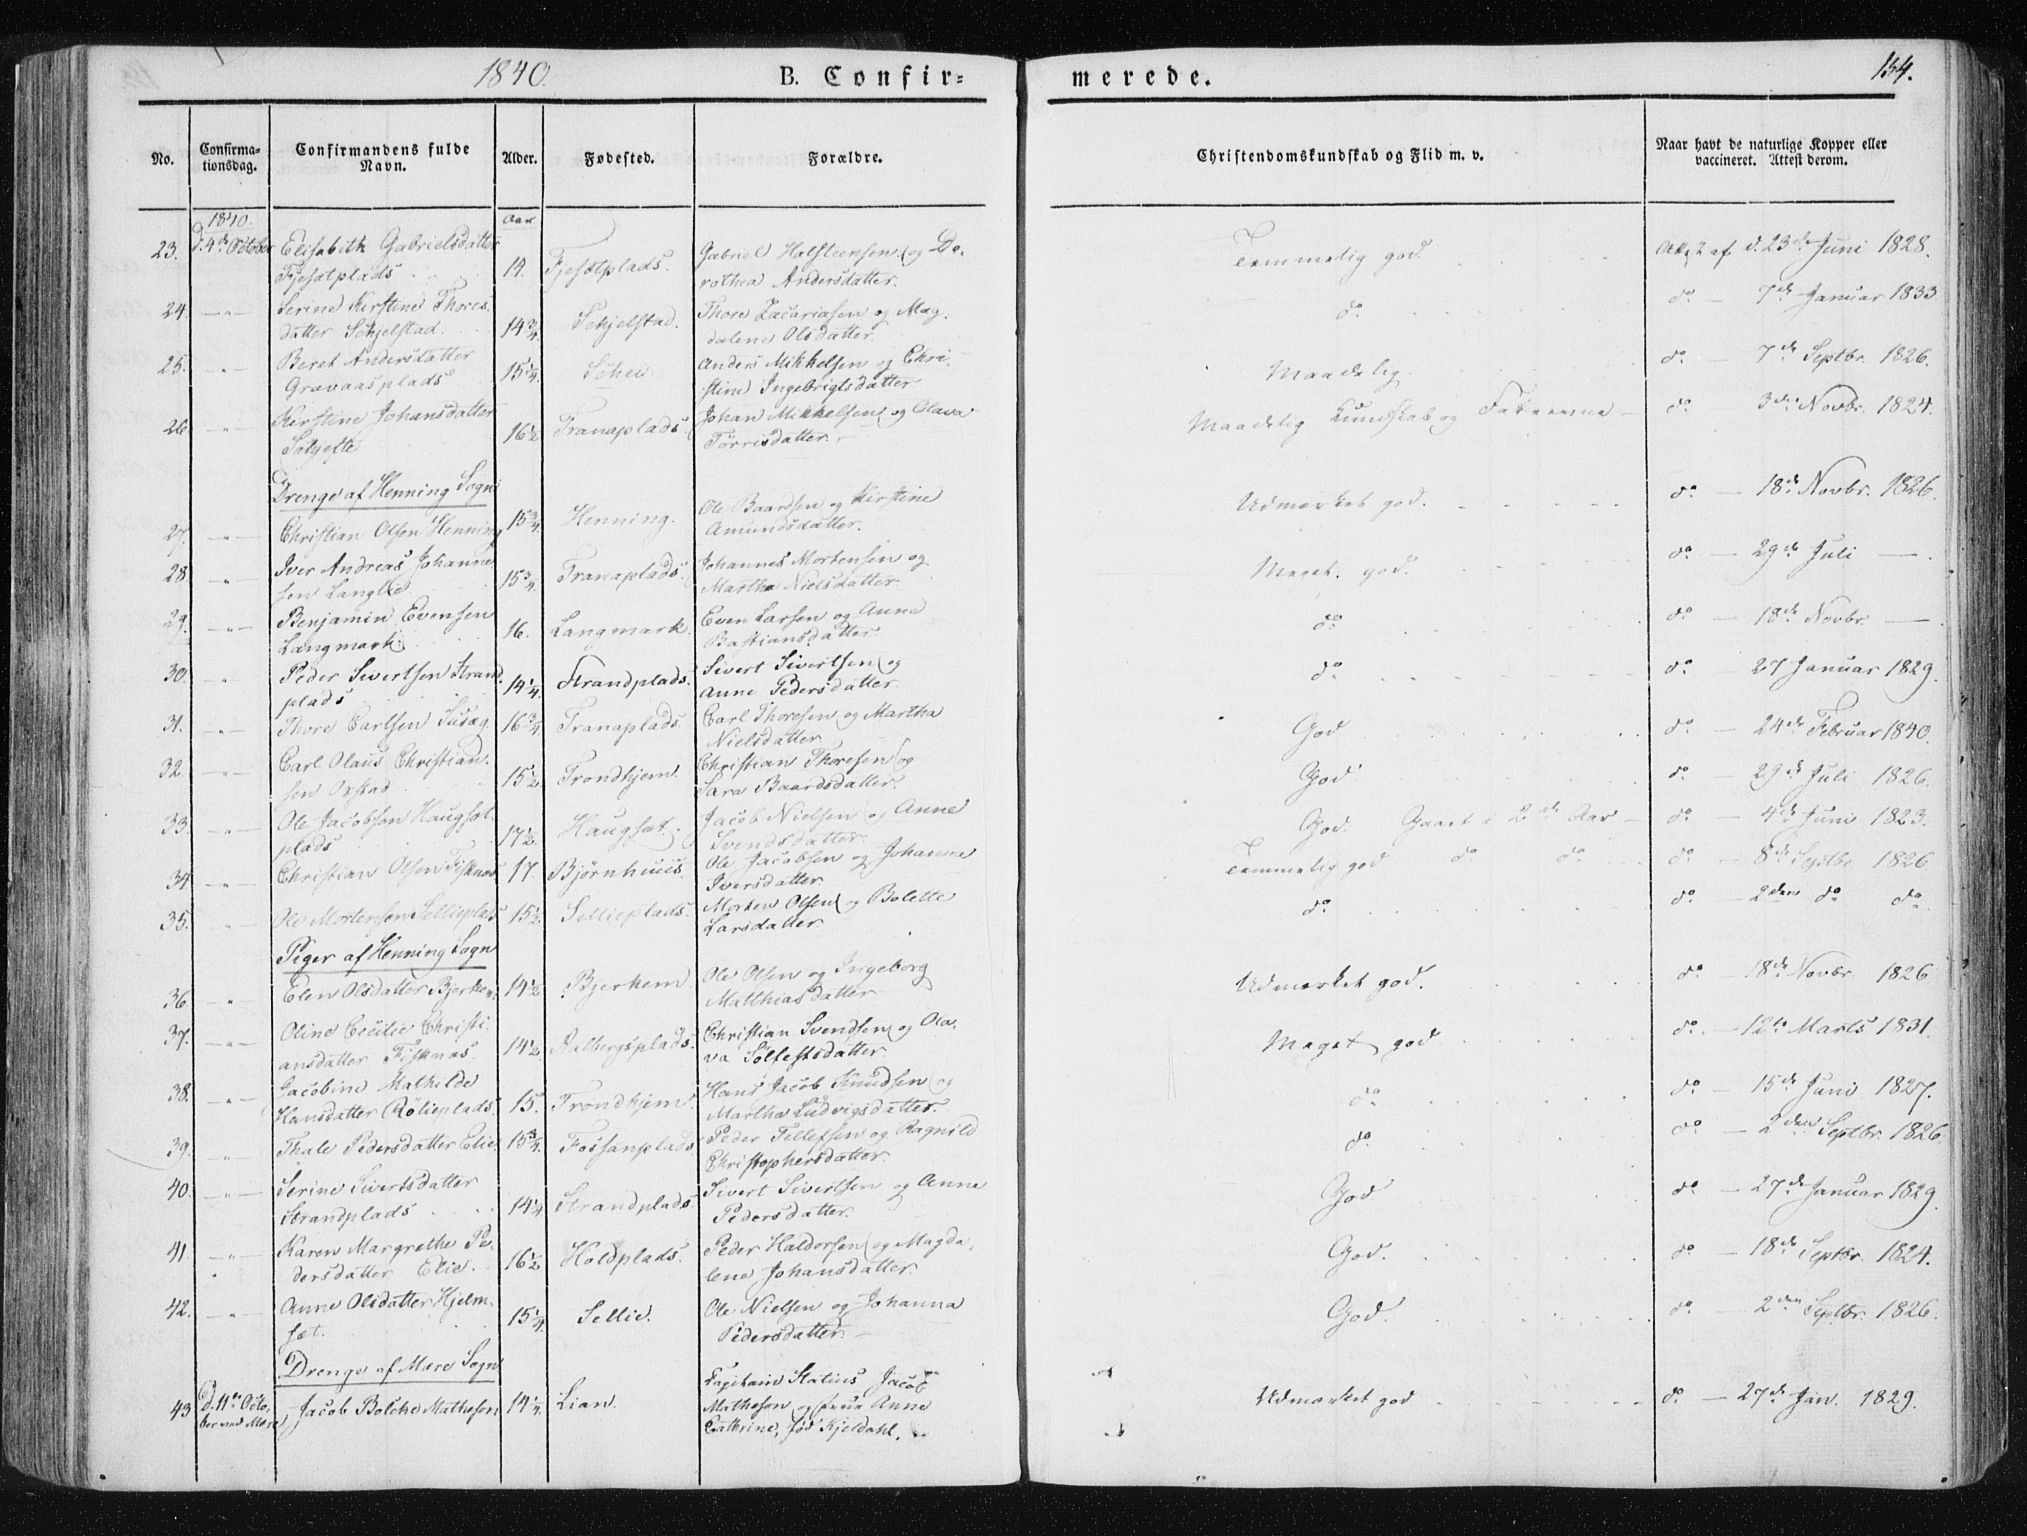 1840. B. Confir=
merede. 154.
No. Confirma-tionsdag. Confirmandens fulde Navn. Alder. Fødested. Forældre. Christendomskundskab og Flid m. v. Naar havt de naturlige Kopper eller vaccineret. Attest derom.
1840. Aar
23. d. 4de October Elisabeth Gabrielsdatter Gabriel Halsteensen og Do- Temmelig god Att af d. 23de Juni 1828.
Fjesætplads 14. Fjesætplads. rothea Andersdatter.
24. — " — Serine Kirstine Thores- Thore Zacariasen og Mag- do do — 7de Januar 1833
datter Schjelstad 14 3/4 Schjelstad. dalena Olsdatter
25. — " — Beret Andersdatter Anders Mikkelsen og Chri- Maadelig do — 7de Septbr. 1826.
Gravaasplads 15 1/4. Schei. stine Ingebrigtsdatter
26. — " — Kirstine Johansdatter 16 1/2 Tranaplads Johan Mikkelsen og Olava Maadelig Kundskab og do — 3die Novbr. 1824.
Törrisdatter
Drenge af Henning Sogn
27. — " — Christian Olsen Henning 15 3/4. Henning. Ole Baardsen og Kirstine Udmærket god. do — 18de Novbr. 1826.
Amundsdatter.
28. — " — Iver Andreas Johanne- 15 3/4. Tranaplads. Johannes Mortensen og Meget god. do — 29de Juli —
sen Langlie Martha Nielsdatter.
29. — " — Benjamin Evensen 16. Langmark. Even Larsen og Anne do do — 18de Novbr —
Langmark Bastiansdatter.
30. " Peder Sivertsen Strand- 14 1/4. Strandplads. Sivert Sivertsen og do do — 27 Januar 1829.
plads Anne Pedersdatter.
31. — " — Thore Carlsen Susæg 16 3/4 Tranaplads. Carl Thoresen og Martha God do — 24de Februar 1840.
Nielsdatter
32. — " — Carl Olaus Christian- 15 1/2 Trondhjem. Christian Thoresen og God do — 29de Juli 1826.
sen Oxstad Sara Baardsdatter.
33. — " — Ole Jacobsen Haugsæt- 17 1/2 Haugsæt. Jacob Nielsen og Anne God. Gaaet i 2det Aar — do — 4de Juni 1823.
plads Svendsdatter.
34. — " — Christian Olsen Fisknæs 17. Bjørnhuus. Ole Jacobsen og Johanna Temmelig god do do do — 8de Septbr 1826
Iversdatter.
35. — " — Ole Mortensen Sellieplads 15 1/2 Sellieplads. Morten Olsen og Bolette do do — 2den do do
Larsdatter.
Piger af Henning Sogn
36. — " — Elen Olsdatter Bjerkem 14 1/2 Bjerkem Ole Olsen og Ingeborg Udmærket god. do — 18de Novbr. 1826
Matthiasdatter
37. — " — Oline Cecilie Christi- 14 1/2 Aalbergsplads. Christian Svendsen og Ola- Meget god do — 12te Marts 1831.
ansdatter Fisknæs. va Solfestsdatter
38. — " — Jacobine Mathilde 15. Trondhjem. Hans Jacob Knudsen og do do — 15de Juni 1827.
Hansdatter Röllieplads Martha Ludvigsdatter.
39. " Thale Pedersdatter Elie 15 3/4 Fossanplads Peder Tellefsen og Ragnild do do — 2den Septbr. 1826.
Christophersdatter.
40. — " — Serine Sivertsdatter 14 1/4 Strandplads Sivert Sivertsen og Anne God do — 27de Januar 1829.
Strandplads Pedersdatter.
41. — " — Karen Margrethe Pe- 16 1/2 Holdplads. Peder Haldorsen og Magda- God. do — 18de Septbr. 1824.
dersdatter Elie. lene Johansdatter.
42. " Anne Olsdatter Hjelm- 15 1/4 Sellie. Ole Nielsen og Johanna God. do — 2den Septbr. 1826.
sæt. Pedersdatter. —
Drenge af Mære Sogn
43 D. 11te Octo- Jacob Bolcke Mathesen 14 1/4. Lian. Capitain Statius Jacob Udmærket god do — 27de Jan. 1829.
ber ved Mære Mathesen og Frue Anne
Cathrine, fød Kjeldahl.